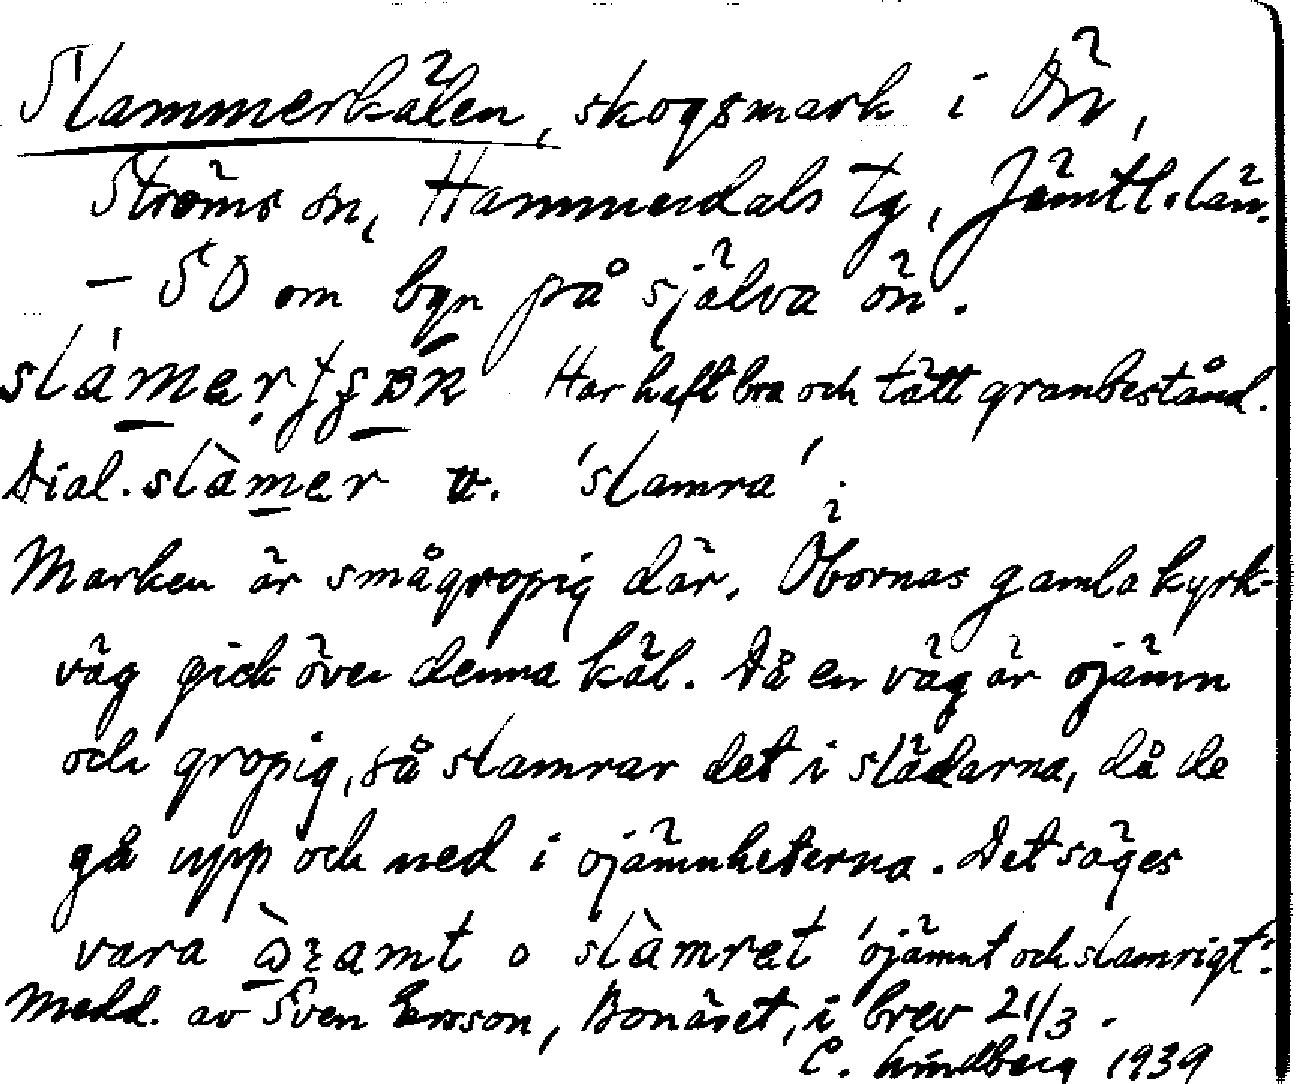 Slammerkälen, skogsmark i Ön,
Ströms sn, Hammerdals tg, Jämtl. län.
– SO om byn på själva ön.
Har haft bra och tätt granbestånd.
Dial. slàmer v. 'slamra'.
Marken är smågropig där. Öbornas gamla kyrk-
väg gick över denna käl. Då en väg är ojämn
och gropig, så slamrar det i slädarna, då de
gå upp och ned i ojämnheterna. Det säges
vara o slàmret 'ojämnt och slamrigt'.
Medd. av Sven Ersson, Bonäset, i brev 21/3.
C. Lindberg 1939